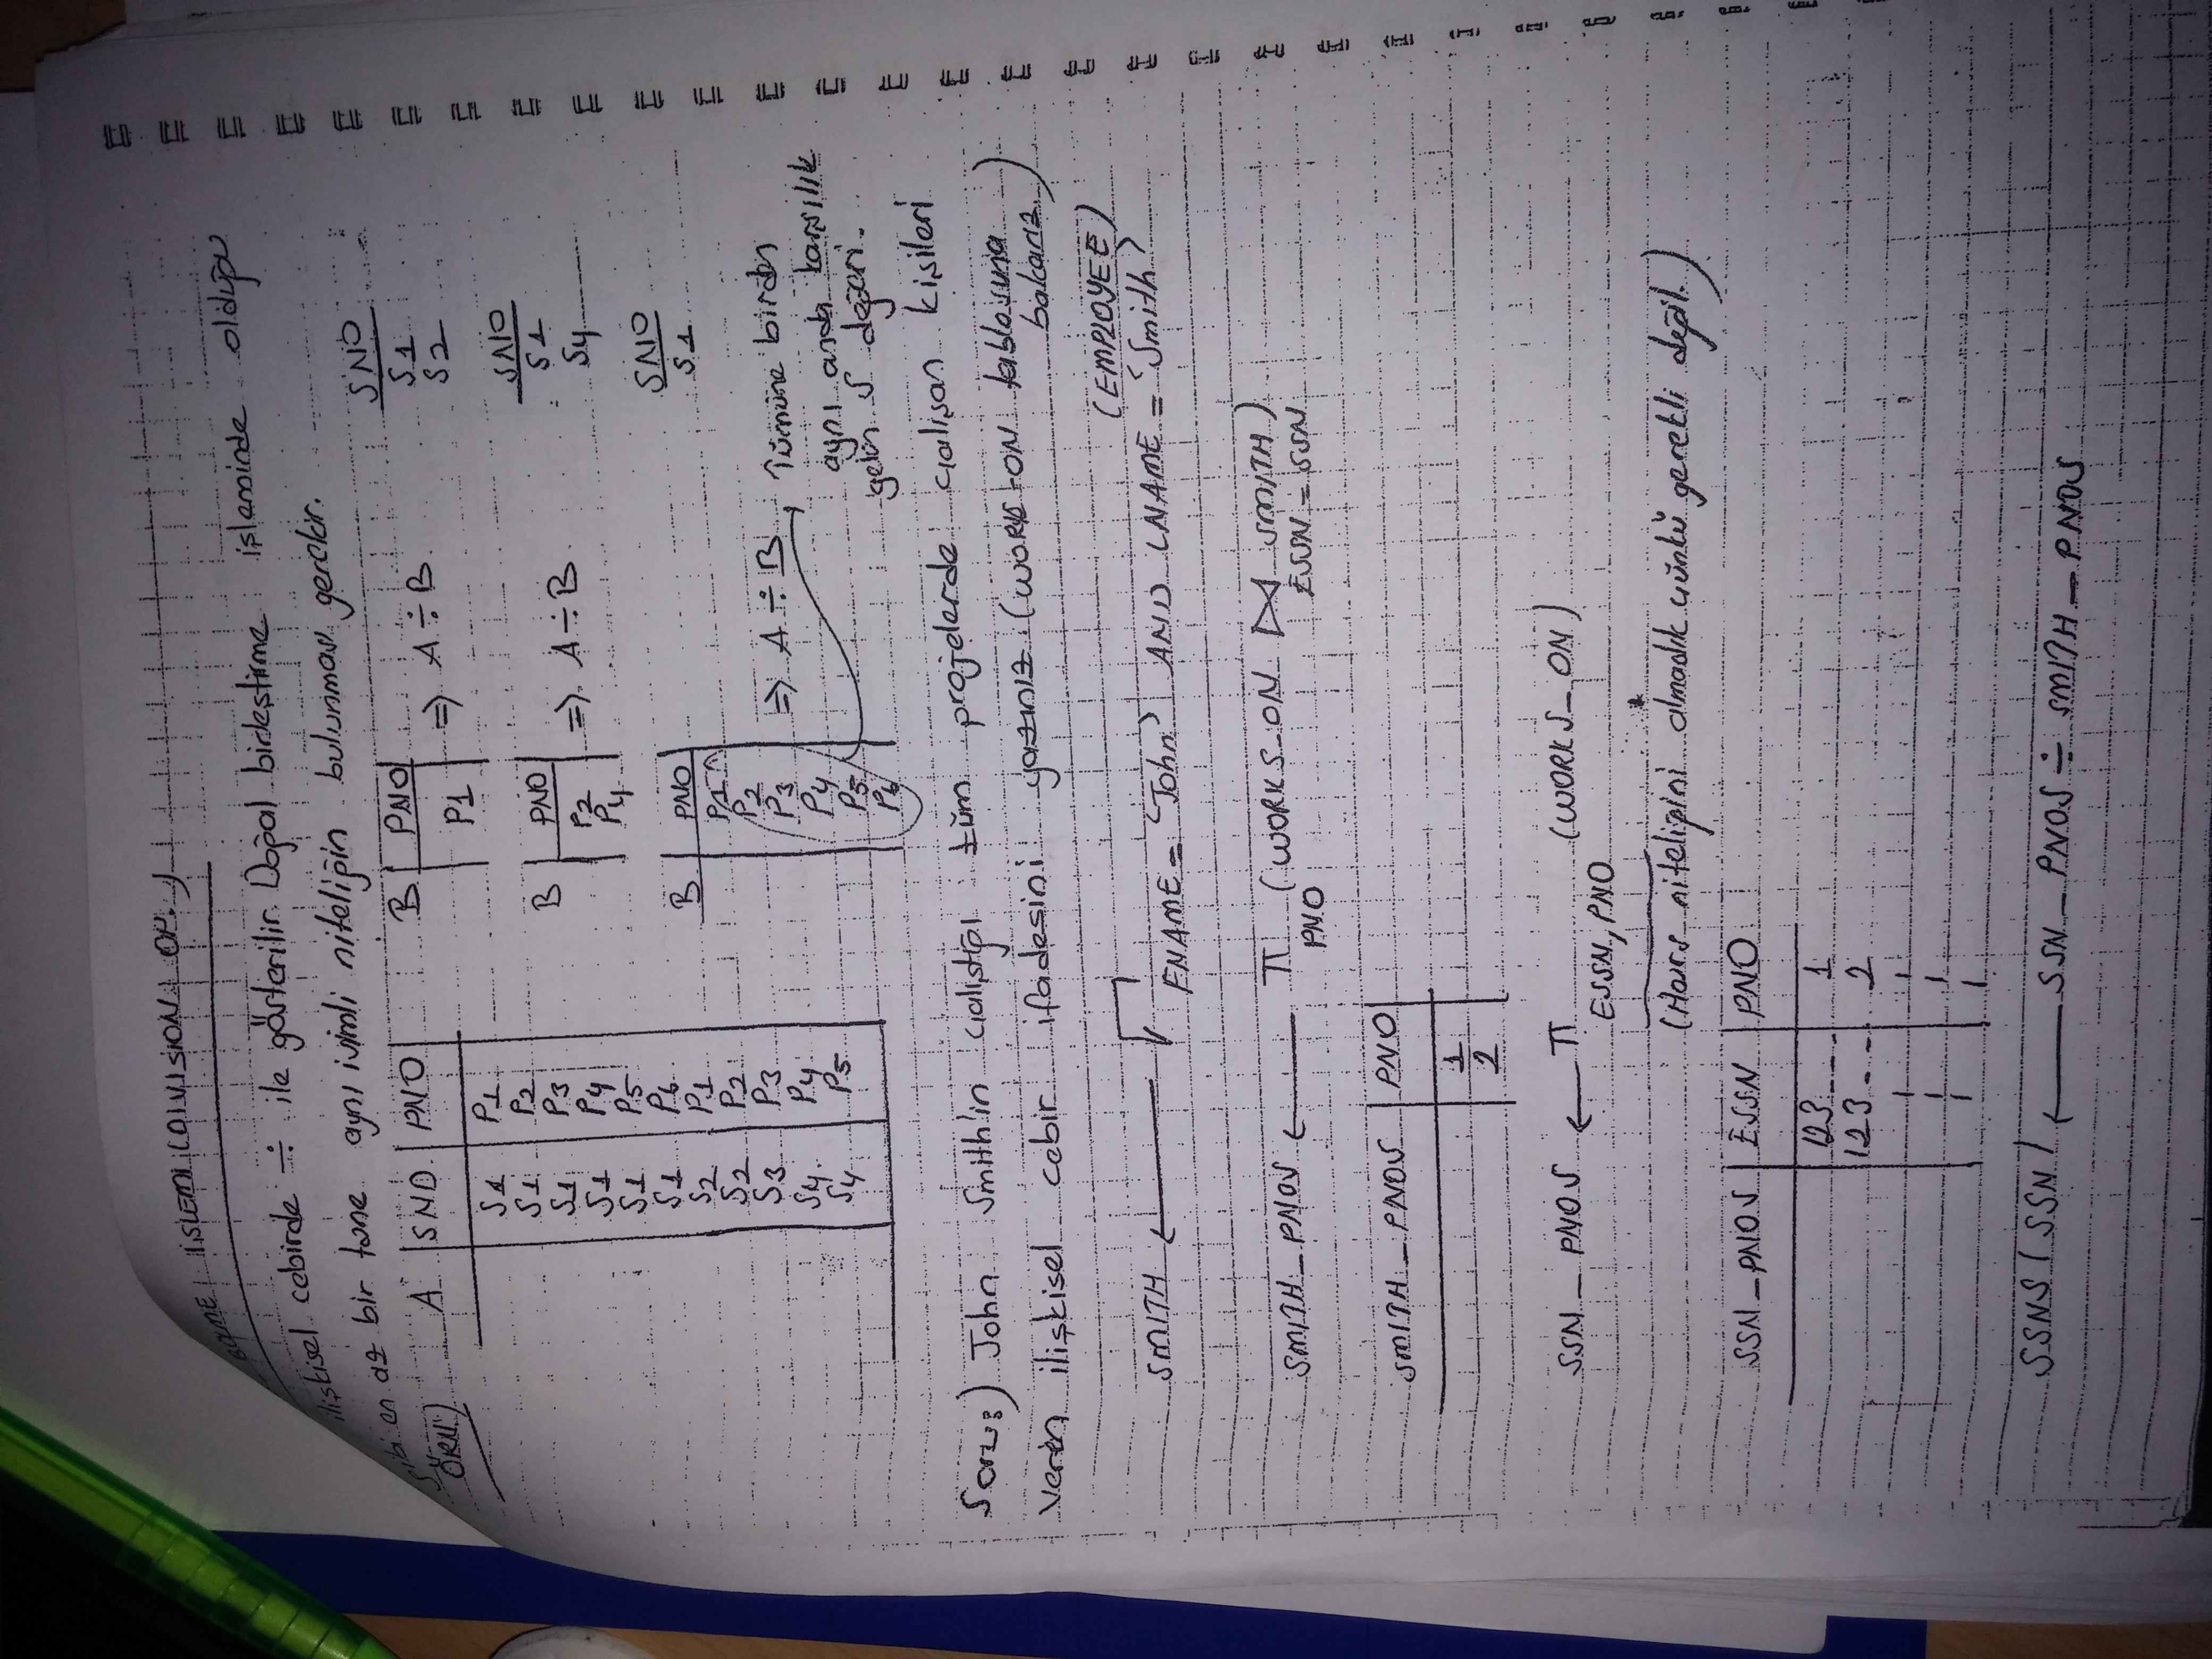 BÖLME İŞLEMİ (DIVISION OP.)
ilişkisel cebirde ÷ ile gösterilir. Doğal birleştirme işleminde olduğu
gibi en az bir tane aynı isimli niteliğin bulunması gerekir.
ÖRN:) A | SNO | PNO
S1 P1
S1 P2
S1 P3
S1 P4
S1 P5
S1 P6
S2 P1
S2 P2
S3 P3
S4 P4
S4 P5
B | PNO
P1
=> A ÷ B
SNO
S1
S2
B | PNO
P2
P4
=> A ÷ B
SNO
S1
S4
B | PNO
P1
P2
P3
P4
P5
P6
=> A ÷ B
SNO
S1
Tümüne birden
aynı anda karşılık
gelen S değeri.
Soru:) John Smith'in çalıştığı tüm projelerde çalışan kişileri
veren ilişkisel cebir ifadesini yazınız. (WORKS-ON tablosuna
bakarız.)
SMITH ← σ FNAME = 'John' AND LNAME = 'Smith' (EMPLOYEE)
SMITH_PNOS ← π PNO (WORKS_ON ⋈ ESSN = SSN SMITH)
SMITH_PNOS | PNO
1
2
SSN_PNOS ← π ESSN, PNO (WORKS_ON)
(Hours niteliğini almadık çünkü gerekli değil.)
SSN_PNOS | ESSN | PNO
123... 1
123... 2
SSNS(SSN) ← SSN_PNOS ÷ SMITH_PNOS